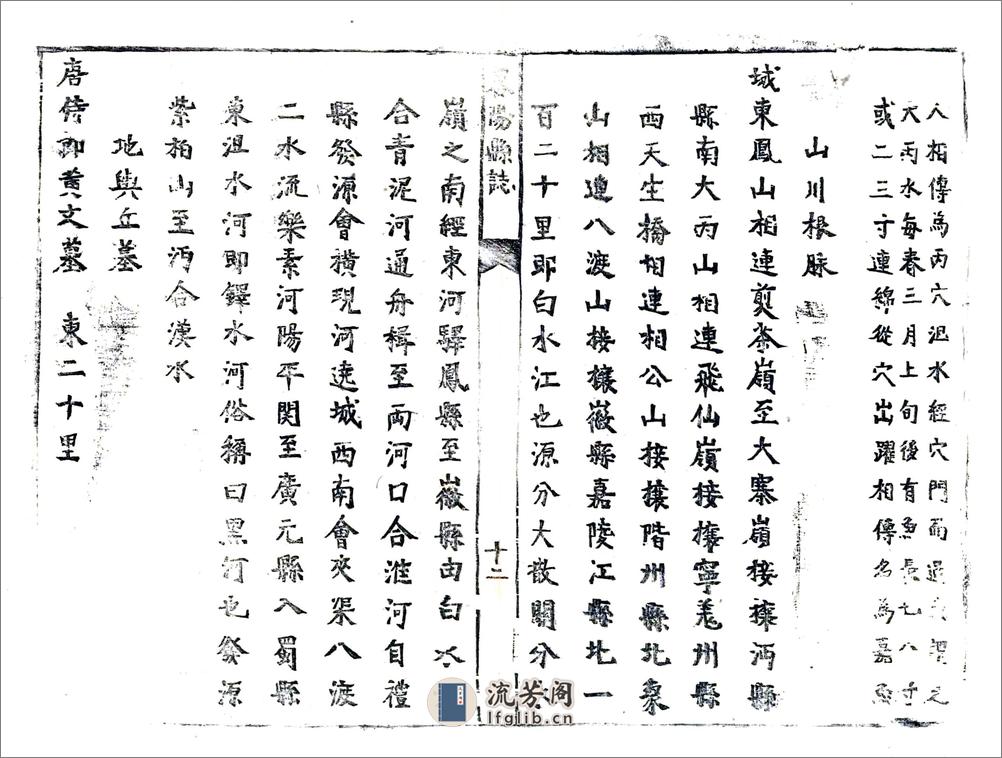 人相傳為丙穴沮水經穴門而過或謂之
大丙水每春三月上旬後有魚長七八寸
或二三寸連綿從穴出躍相傳名為嘉魚
山川根脉
城東鳳山相連煎茶嶺至大寨嶺接壤沔縣
縣南大丙山相連飛仙嶺接壤寧羌州縣
西天生橋相連相公山接壤階州縣北象
山相連八渡山接壤徽縣嘉陵江縣北一
百二十里即白水江也源分大散關分水
陽縣誌
十二
嶺之南經東河驛鳳縣至徽縣由白水
合青泥河通舟楫至両河口合淮河自禮
縣發源會橫現河遶城西南會夾渠八渡
二水流樂素河陽平関至廣元縣入蜀縣
東沮水河即鐸水河俗稱曰黑河也發源
紫柏山至沔合漢水
地輿丘墓
唐侍郎黃文墓 東二十里
流芳阁
lfglib.cn